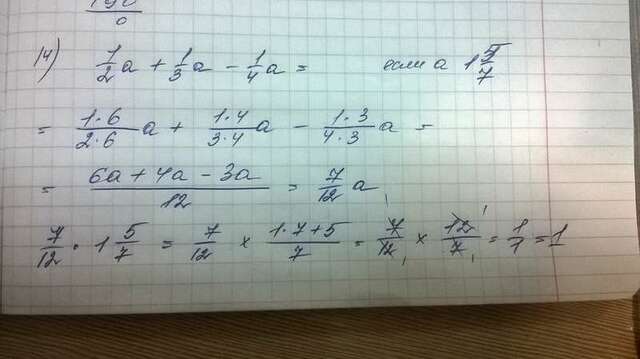 14) 1/2 a + 1/3 a - 1/4 a = если a 1 5/7
= 1·6/2·6 a + 1·4/3·4 a - 1·3/4·3 a =
= 6a + 4a - 3a/12 = 7/12 a
7/12 · 1 5/7 = 7/12 × 1·7+5/7 = 7/12 × 12/7 = 1/1 = 1